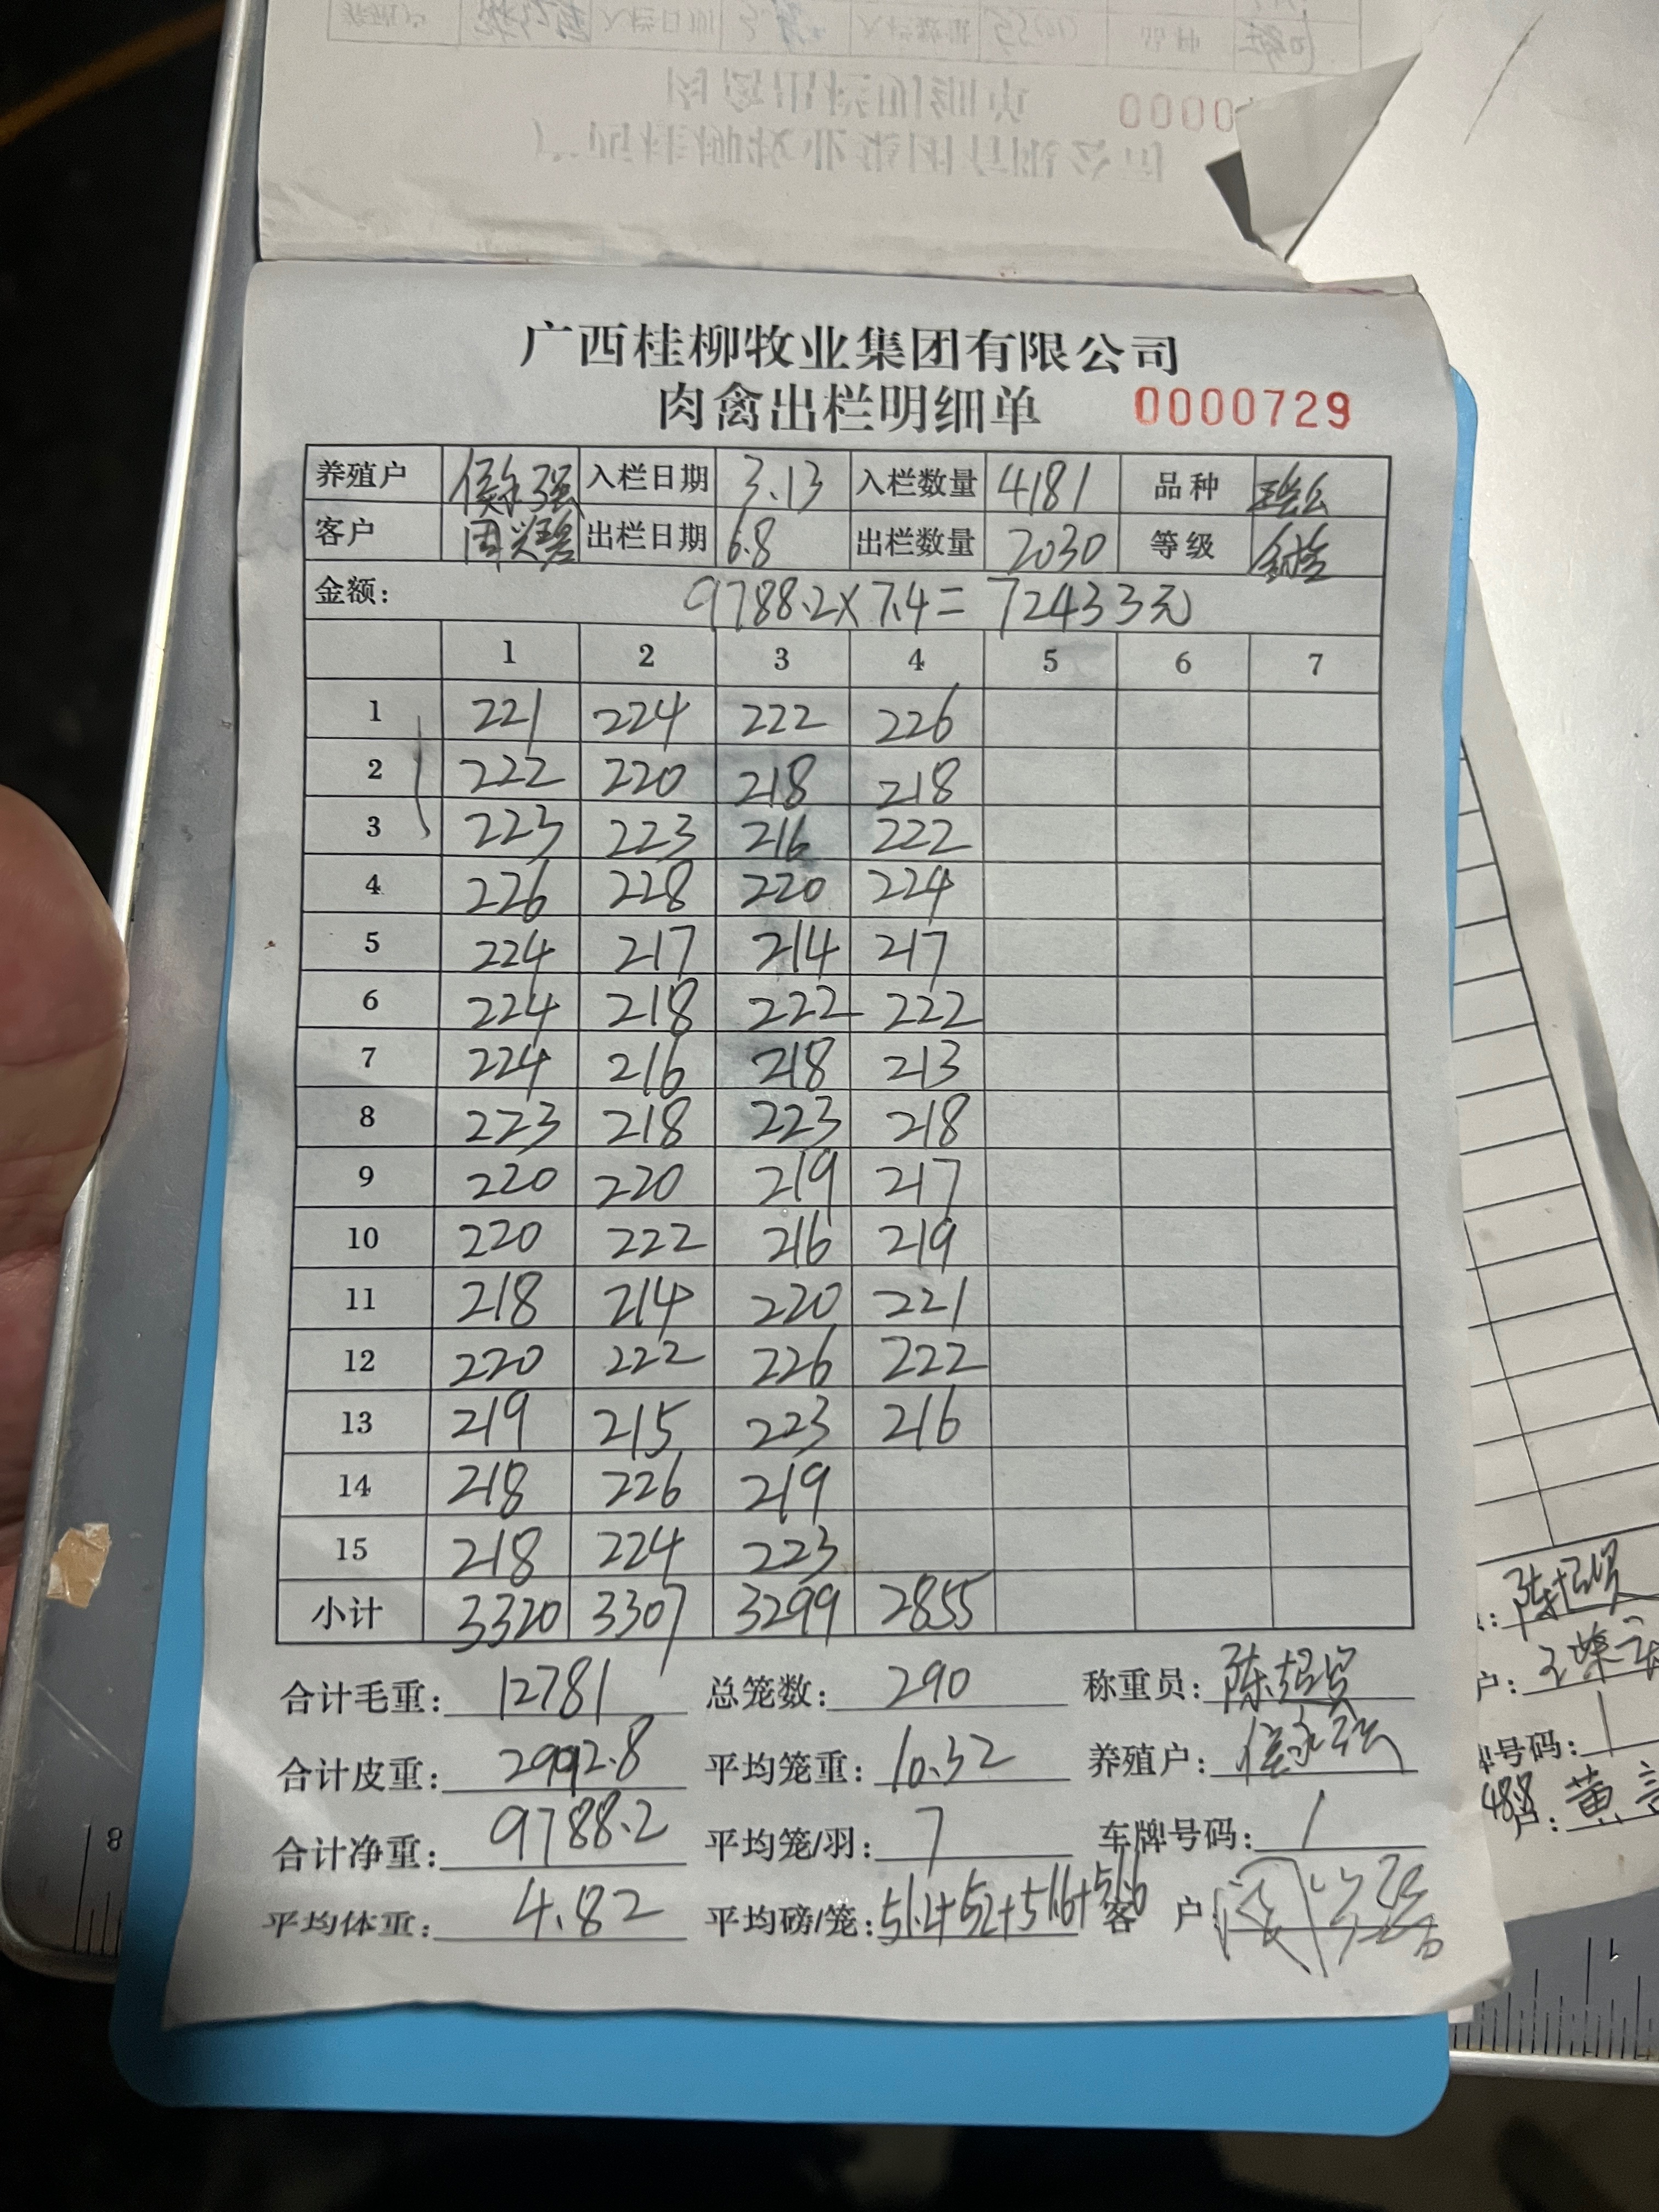 广西桂柳牧业集团有限公司
肉禽出栏明细单 0000729
养殖户 侯永强 入栏日期 3.13 入栏数量 4181 品种
客户 周兴碧 出栏日期 6.8 出栏数量 2030 等级
金额: 9788.2×7.4=72433元
1 2 3 4 5 6 7
1 221 224 222 226
2 222 220 218 218
3 223 223 216 222
4 226 228 220 224
5 224 217 214 217
6 224 218 222 222
7 224 216 218 213
8 223 218 223 218
9 220 220 219 217
10 220 222 216 219
11 218 214 220 221
12 220 222 226 222
13 219 215 223 216
14 218 226 219
15 218 224 223
小计 3320 3307 3299 2855
合计毛重: 12781 总笼数: 290 称重员:
合计皮重: 2992.8 平均笼重: 10.32 养殖户: 侯永强
合计净重: 9788.2 平均笼/羽: 7 车牌号码: 1
平均体重: 4.82 平均磅/笼: 51.2+52+51.6+51.6 客 户: 周兴碧
号码:
488
户: 黄
8